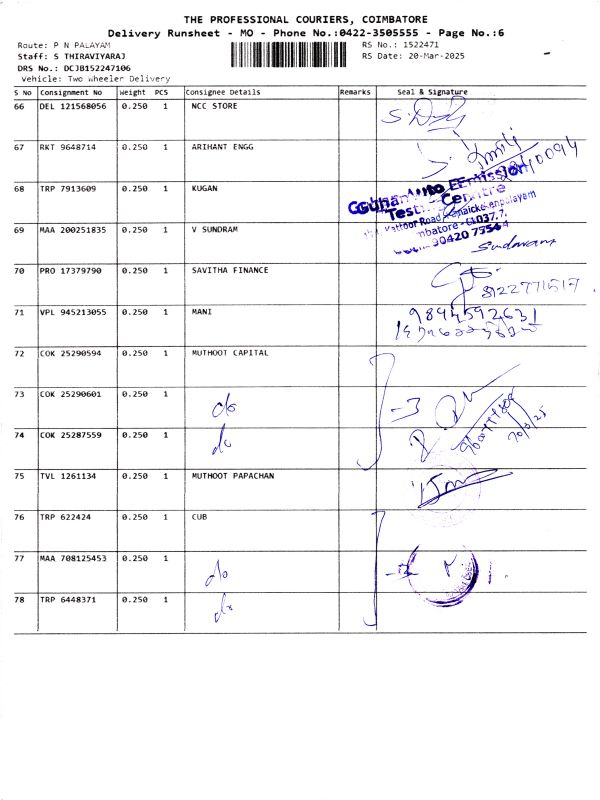 THE PROFESSIONAL COURIERS, COIMBATORE
Delivery Runsheet - MO - Phone No.:0422-3505555 - Page No.:6
Route: P N PALAYAM
RS No.: 1522471
Staff: S THIRAVIYARAJ
RS Date: 20-Mar-2025
DRS No.: DCJB152247106
Vehicle: Two Wheeler Delivery
S No Consignment No Weight PCS Consignee Details Remarks Seal & Signature
66 DEL 121568056 0.250 1 NCC STORE
67 RKT 9648714 0.250 1 ARIHANT ENGG
68 TRP 7913609 0.250 1 KUGAN
Testing Centre
69 MAA 200251835 0.250 1 V SUNDRAM
Sundaram
70 PRO 17379790 0.250 1 SAVITHA FINANCE
8122771517
71 VPL 945213055 1 0.250 MANI
9894592631
72 COK 25290594 0.250 1 MUTHOOT CAPITAL
73 COK 25290601 0.250 1 do -3
74 COK 25287559 0.250 1 do
20/3/25
75 TVL 1261134 0.250 1 MUTHOOT PAPACHAN
76 TRP 622424 0.250 1 CUB
77 MAA 708125453 0.250 1 do -3
78 TRP 6448371 0.250 1 do